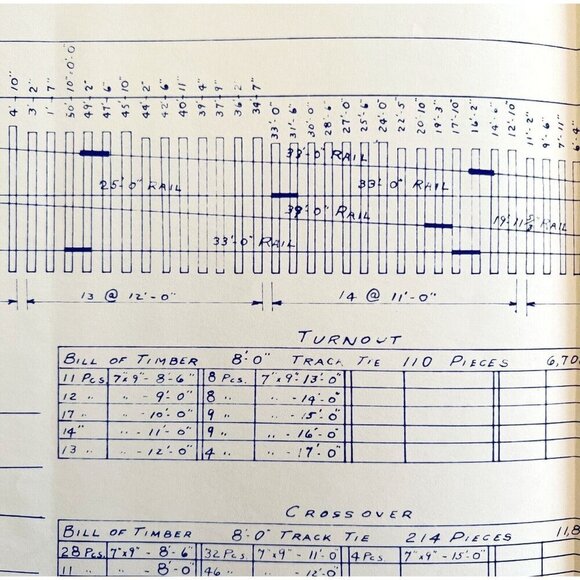 4'-10" 3'-2" 1'-7" 50'-10"=0'-0" 49'-2" 47'-6" 45'-10" 44'-2" 42'-6" 40'-11" 39'-4" 37'-9" 36'-2" 34'-7" 33'-0" 31'-6" 30'-0" 28'-6" 27'-0" 25'-6" 24'-0" 22'-5" 20'-10" 19'-3" 17'-10" 16'-2" 14'-6" 12'-10" 11'-2" 9'-6" 7'-11" 6'-4"
33'-0" RAIL
25'-0" RAIL 33'-0" RAIL
39'-0" RAIL RAIL
33'-0" RAIL
13 @ 12'-0" 14 @ 11'-0"
TURNOUT
BILL OF TIMBER 8'-0" TRACK TIE 110 PIECES 6,70
11 PCS. 7"x9" - 8'-6" 8 PCS. 7"x9"-13'-0"
12 " " - 9'-0" 8 " " -14'-0"
17 " " - 10'-0" 9 " " -15'-0"
14 " " - 11'-0" 9 " " -16'-0"
13 " " - 12'-0" 4 " " -17'-0"
CROSSOVER
BILL OF TIMBER 8'-0" TRACK TIE 214 PIECES 11,8
28 PCS. 7"x9" - 8'-6" 32 PCS. 7"x9" - 11'-0 4 PCS. 7"x9" - 15'-0"
11 " " - 8'-0" 46 " " - 12'-0"